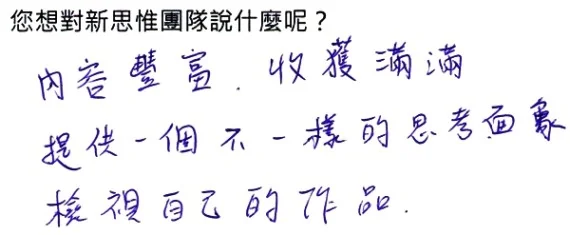 您想對新思惟團隊說什麼呢？
內容豐富．收獲滿滿
提供一個不一樣的思考面象
檢視自己的作品．